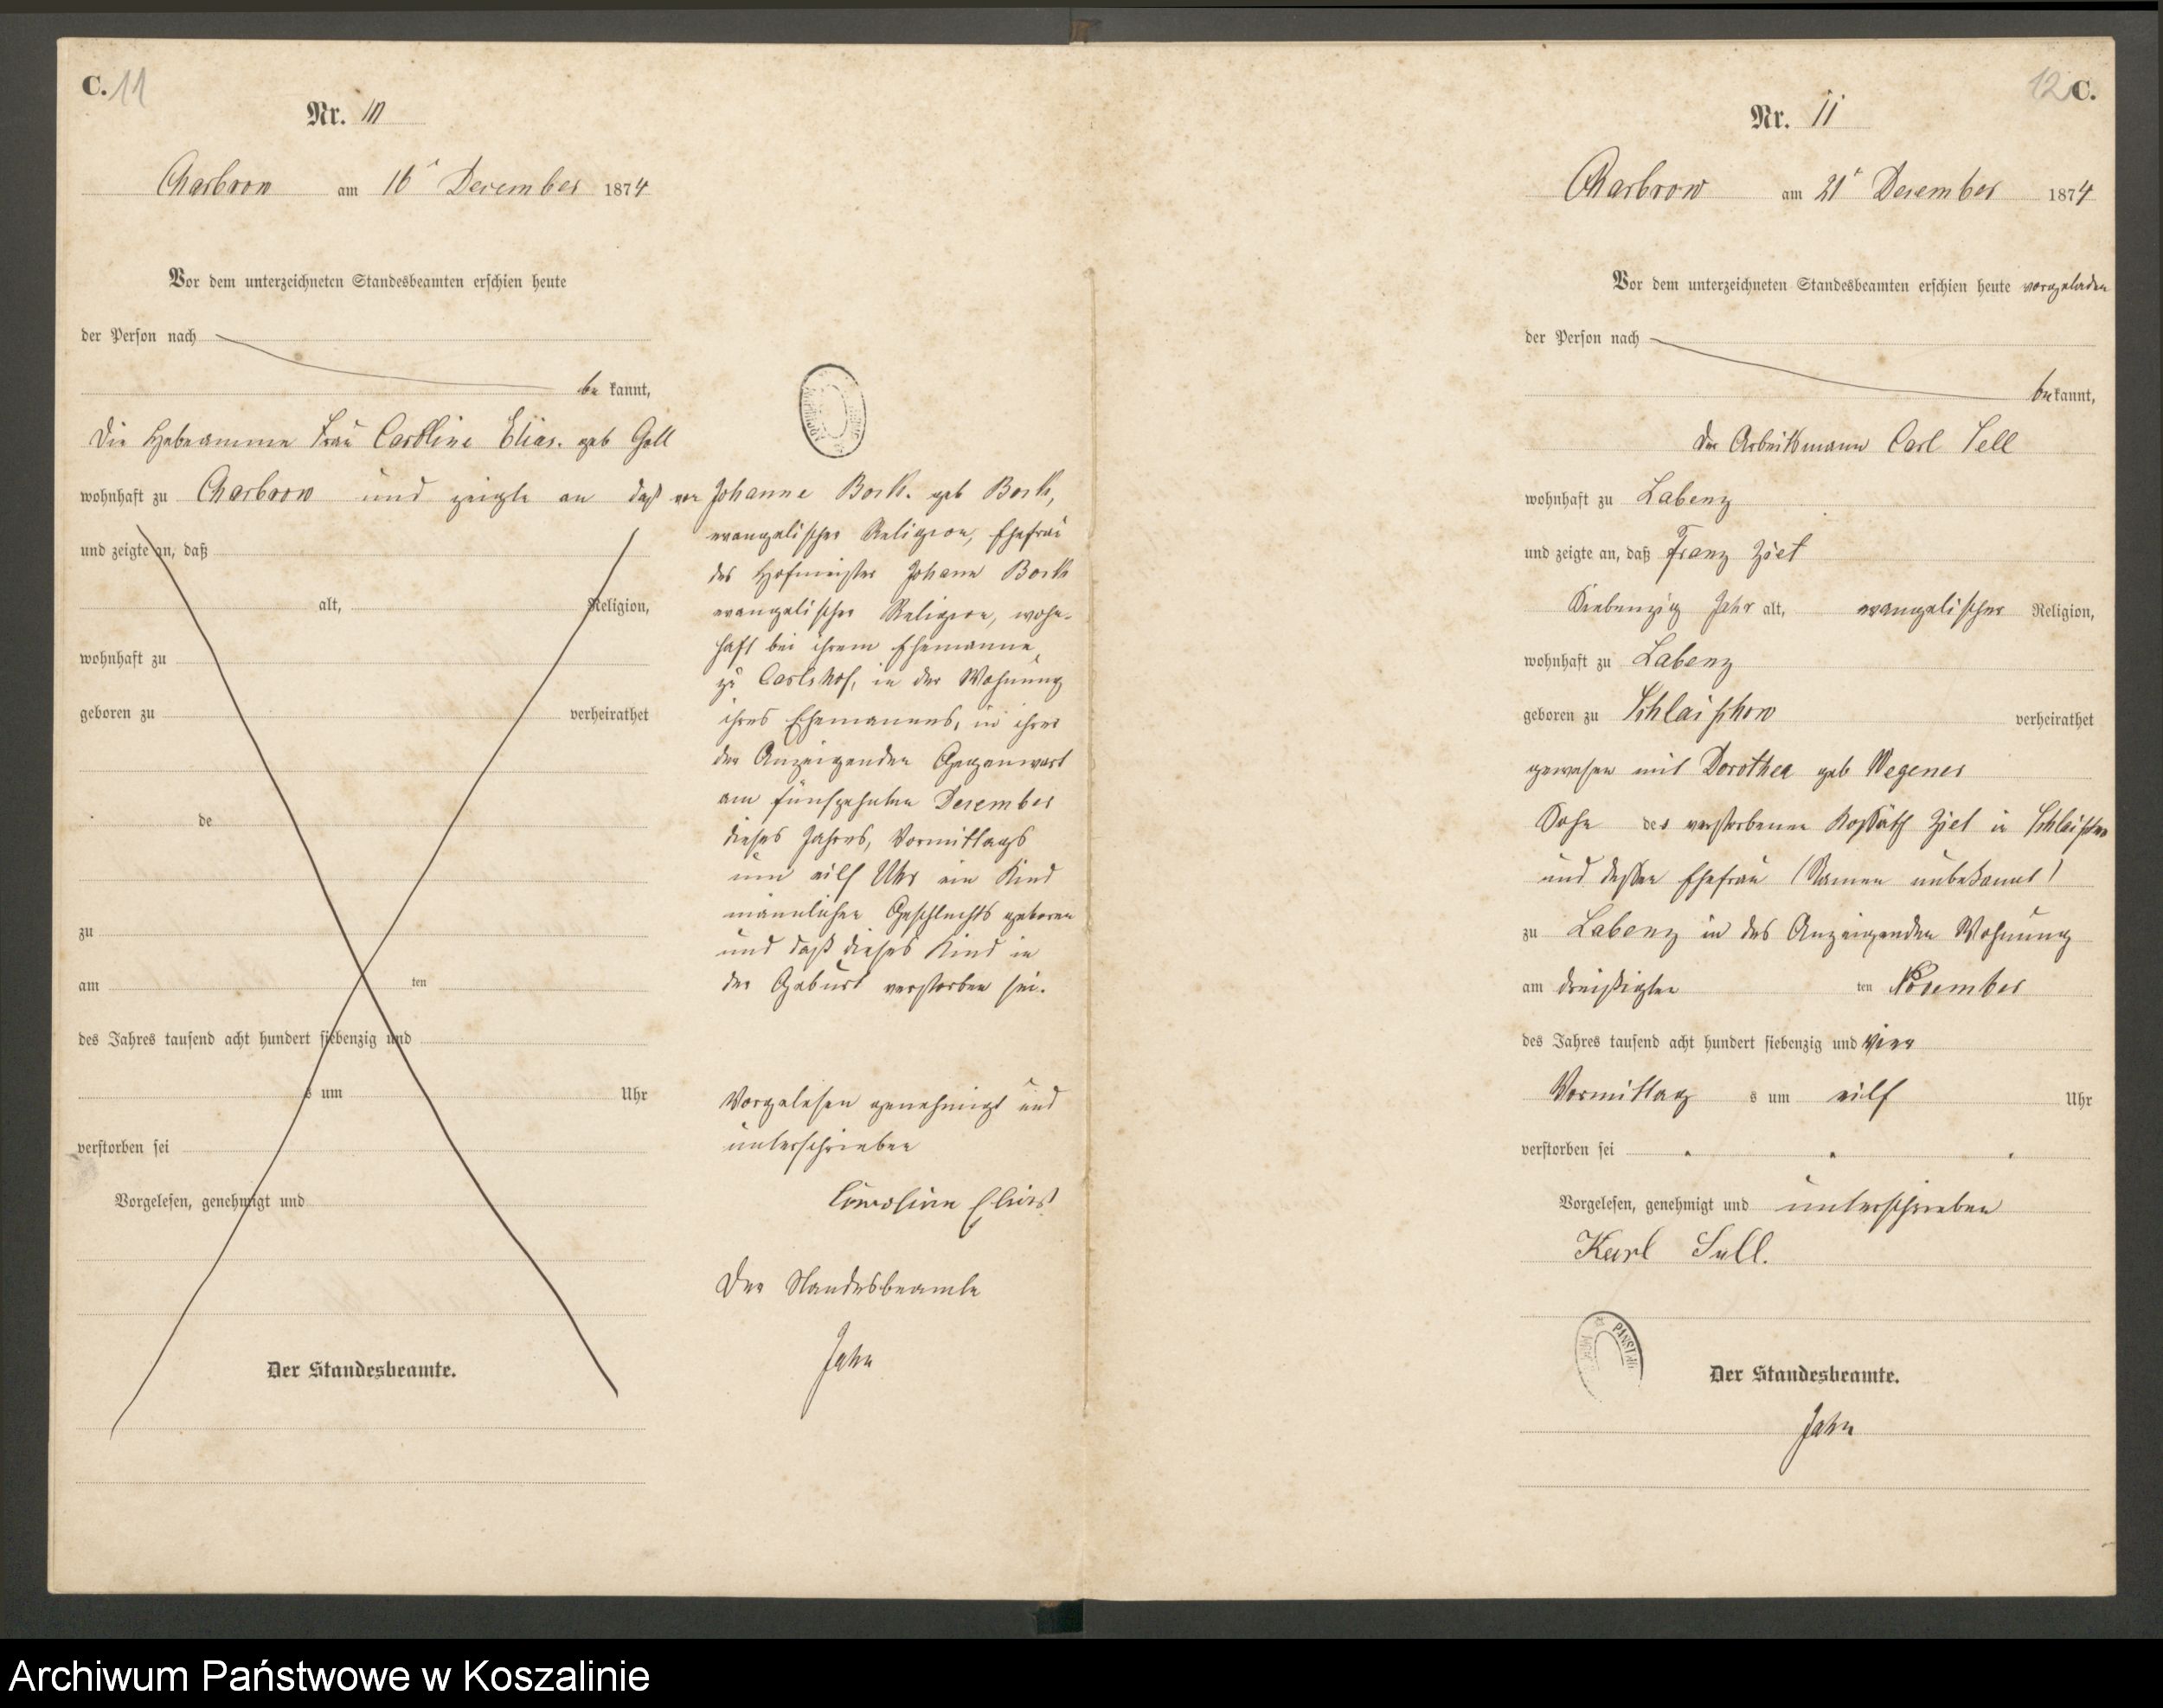 C. 11
Nr. 10
Charbrow am 16' December 1874
Vor dem unterzeichneten Standesbeamten erschien heute
der Person nach
be kannt,
die Hebeamme Frau Caroline Elias. geb Goll
wohnhaft zu Charbrow und zeigte an daß von
und zeigte an, daß
alt, Religion,
wohnhaft zu
geboren zu verheirathet
de
zu
am ten
des Jahres tausend acht hundert siebenzig und
s um Uhr
verstorben sei
Vorgelesen, genehmigt und
Der Standesbeamte.
Johanne Bork. geb Bork,
evangelischer Religion, Ehefrau
des Hofmeister Johann Bork
evangelischer Religion, wohn-
haft bei ihrem Ehemanne,
zu Carlshof, in der Wohnung
ihres Ehemannes, in ihrer
der Anzeigenden Gegenwart
am fünfzehnten December
dieses Jahres, Vormittags
um eilf Uhr ein Kind
männlichen Geschlechts geboren
und daß dieses Kind in
der Geburt verstorben sei.
Vorgelesen genehmigt und
unterschrieben
Caroline Elias
Der Standesbeamte
Jahn
12 C.
Nr. 11
Charbrow am 21' December 1874
Vor dem unterzeichneten Standesbeamten erschien heute vorgeladen
der Person nach
be kannt,
der Arbeitsmann Carl Sell
wohnhaft zu Labenz
und zeigte an, daß Franz Ziet
Siebenzig Jahr alt, evangelischer Religion,
wohnhaft zu Labenz
geboren zu Schlaischow verheirathet
gewesen mit Dorothea geb Wegener
Sohn des verstorbenen Kossäth Ziet in Schlaischow
und dessen Ehefrau (Namen unbekannt)
zu Labenz in des Anzeigenden Wohnung
am dreißigten ten November
des Jahres tausend acht hundert siebenzig und vier
Vormittag s um eilf Uhr
verstorben sei
Vorgelesen, genehmigt und unterschrieben
Karl Sell.
Der Standesbeamte.
Jahn
Archiwum Państwowe w Koszalinie